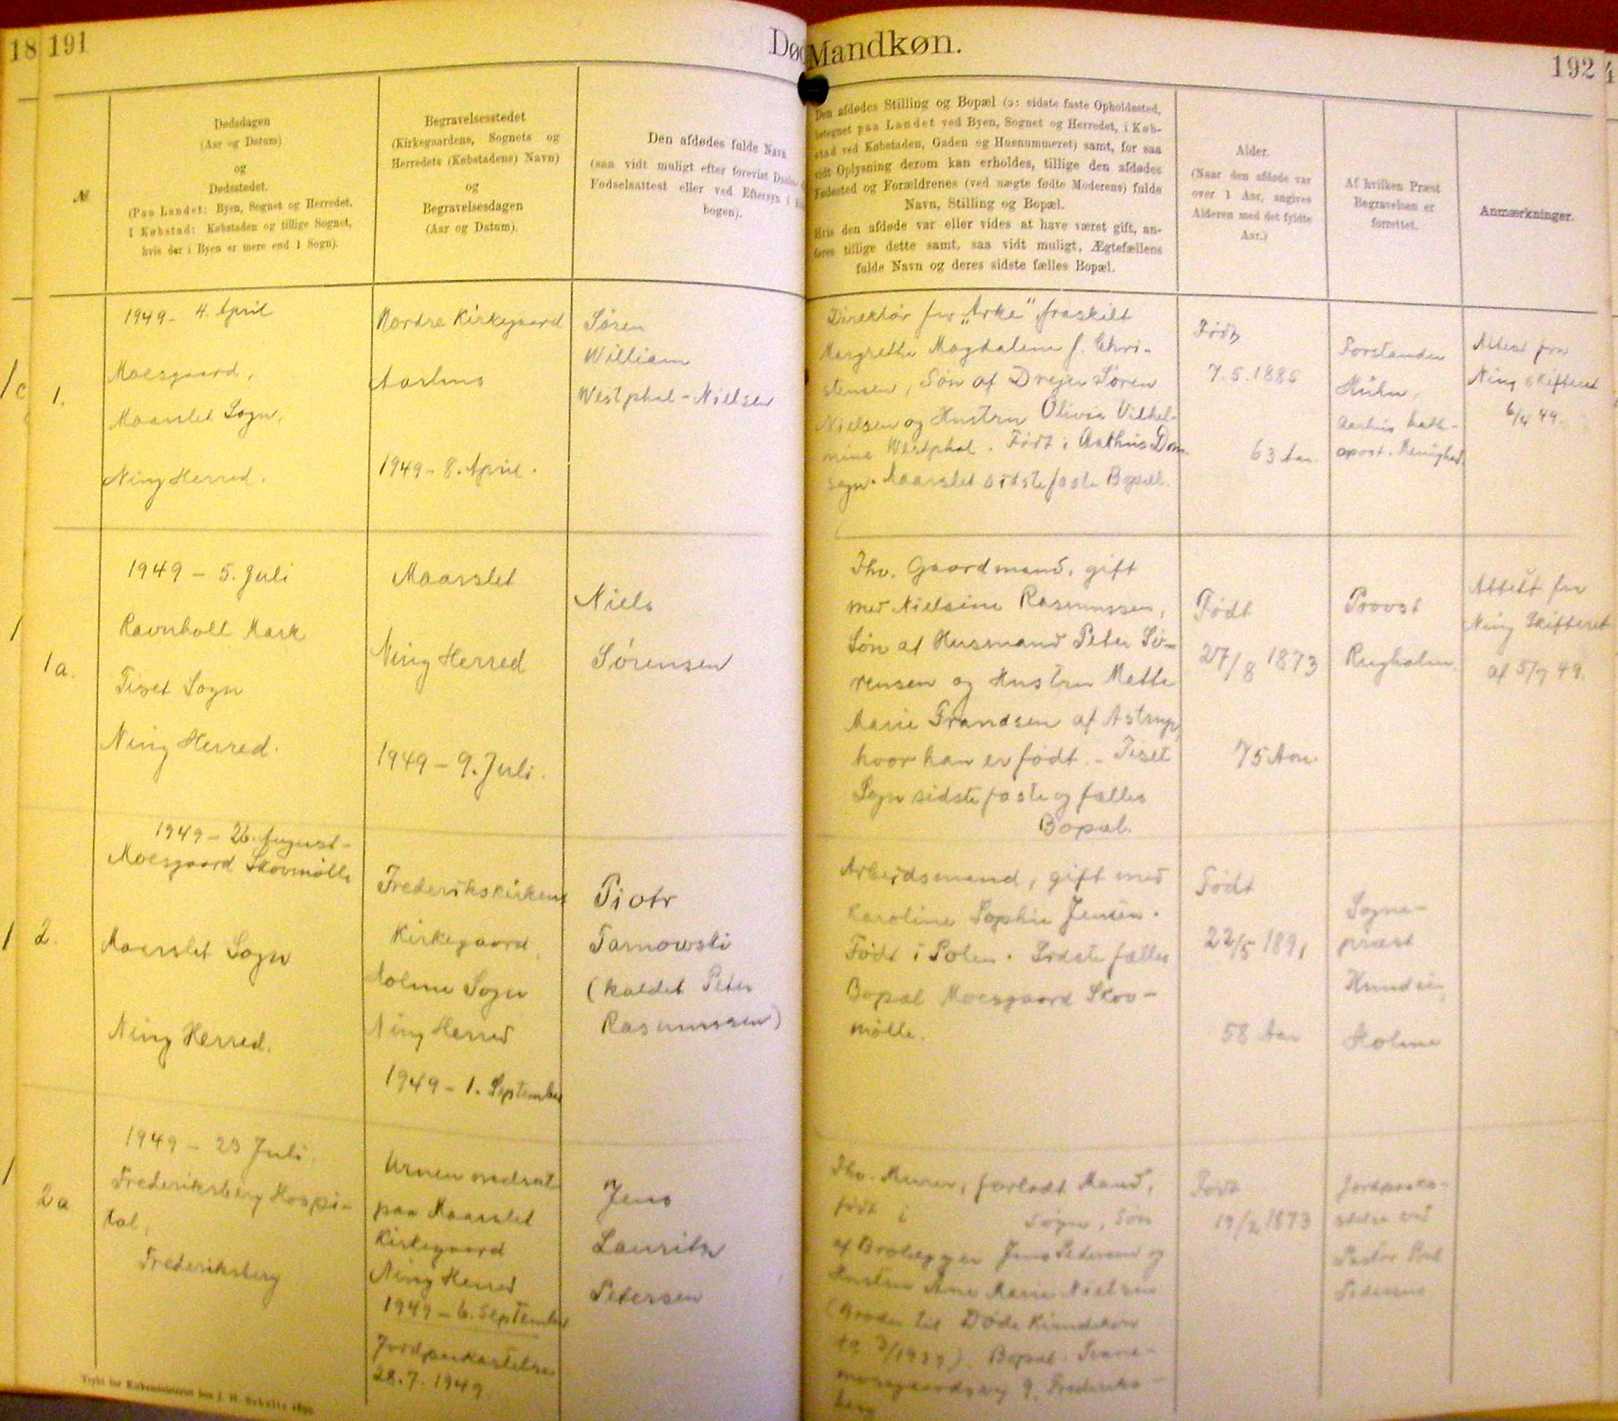 18
191
Død
Mandkøn.
192
4
№
Dødsdagen
(Aar og Datum)
og
Dødsstedet.
(Paa Landet: Byen, Sognet og Herredet.
I Købstad: Købstaden og tillige Sognet,
hvis der i Byen er mere end 1 Sogn).
Begravelsesstedet
(Kirkegaardens, Sognets og
Herredets (Købstadens) Navn)
og
Begravelsesdagen
(Aar og Datum).
Den afdødes fulde Navn
(saa vidt muligt efter forevist
Fødselsattest eller ved Eftersyn i
bogen).
Den afdødes Stilling og Bopæl (ɔ: sidste faste Opholdssted,
betegnet paa Landet ved Byen, Sognet og Herredet, i Køb-
stad ved Købstaden, Gaden og Husnummeret) samt, for saa
vidt Oplysning derom kan erholdes, tillige den afdødes
Fødested og Forældrenes (ved uægte fødte Moderens) fulde
Navn, Stilling og Bopæl.
Hvis den afdøde var eller vides at have været gift, an-
føres tillige dette samt, saa vidt muligt, Ægtefællens
fulde Navn og deres sidste fælles Bopæl.
Alder.
(Naar den afdøde var
over 1 Aar, angives
Alderen med det fyldte
Aar.)
Af hvilken Præst
Begravelsen er
forrettet.
Anmærkninger.
1.
1949 - 4. April
Moesgaard,
Maarslet Sogn,
Ning Herred.
Nordre Kirkegaard
Aarhus
1949 - 8. April.
Søren
William
Westphal-Nielsen
Direktør for „Arke“, fraskilt
Margrethe Magdalene f. Chri-
stensen, Søn af Drejer Søren
Nielsen og Hustru Olivia Vilhel-
mine Westphal. Født i Aarhus Dom
sogn. Maarslet sidste faste Bopæl.
Født
7.5.1885
63 Aar.
Forstander
Hühn,
Aarhus kath-
apost. Menighed.
Attest fra
Ning Skifteret
6/4 49.
1a.
1949 - 5. Juli
Ravnholt Mark
Tiset Sogn
Ning Herred.
Maarslet
Ning Herred
1949 - 9. Juli.
Niels
Sørensen
Fhv. Gaardmand, gift
med Nielsine Rasmussen,
Søn af Husmand Peter Sø-
rensen og Hustru Mette
Marie Frandsen af Astrup,
hvor han er født. - Tiset
Sogn sidste faste og fælles
Bopæl.
Født
27/8 1873
75 Aar.
Provst
Rugholm.
Attest fra
Ning Skifteret
af 5/7 49.
2.
1949 - 26. August -
Moesgaard Skovmølle
Maarslet Sogn
Ning Herred.
Frederikskirkens
Kirkegaard,
Holme Sogn
Ning Herred
1949 - 1. September
Piotr
Tarnowski
(kaldet Peter
Rasmussen)
Arbejdsmand, gift med
Karoline Sophie Jensen.
Født i Polen. Sidste fælles
Bopæl Moesgaard Skov-
mølle.
Født
22/5 1891
58 Aar
Sogne-
præst
Holme
2a
1949 - 23 Juli.
Frederiksberg Hospi-
tal,
Frederiksberg
Urnen nedsat
paa Maarslet
Kirkegaard
Ning Herred
1949 - 6. September
Jordpaakastelse
28.7.1949
Jens
Lauritz
Petersen
Fhv. Murer, forladt Mand,
født i Sogn, Søn
af Brolægger Jens Pedersen og
Hustru Ane Marie Nielsen
Bopæl:
9, Frederiks-
berg
Født
19/2 1873
Jordpaaka-
stelse ved
Pastor Poul
Pedersen
Trykt for Kirkeministeriet hos J. H. Schultz